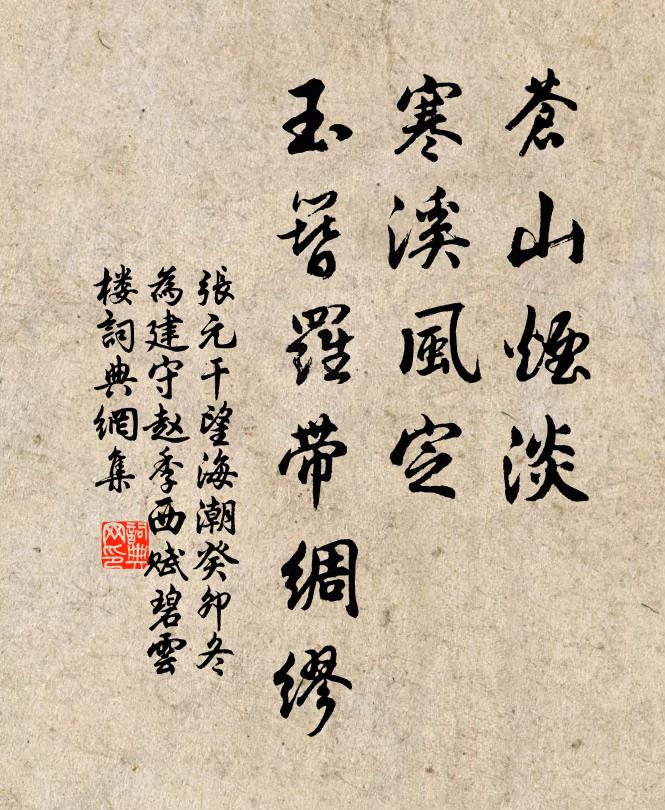 蒼山煙淡
寒溪風定
玉簪羅帶綢繆
張元干望海潮癸卯冬
為建守赵季西赋碧雲
楼詞典網集
詞典
网印